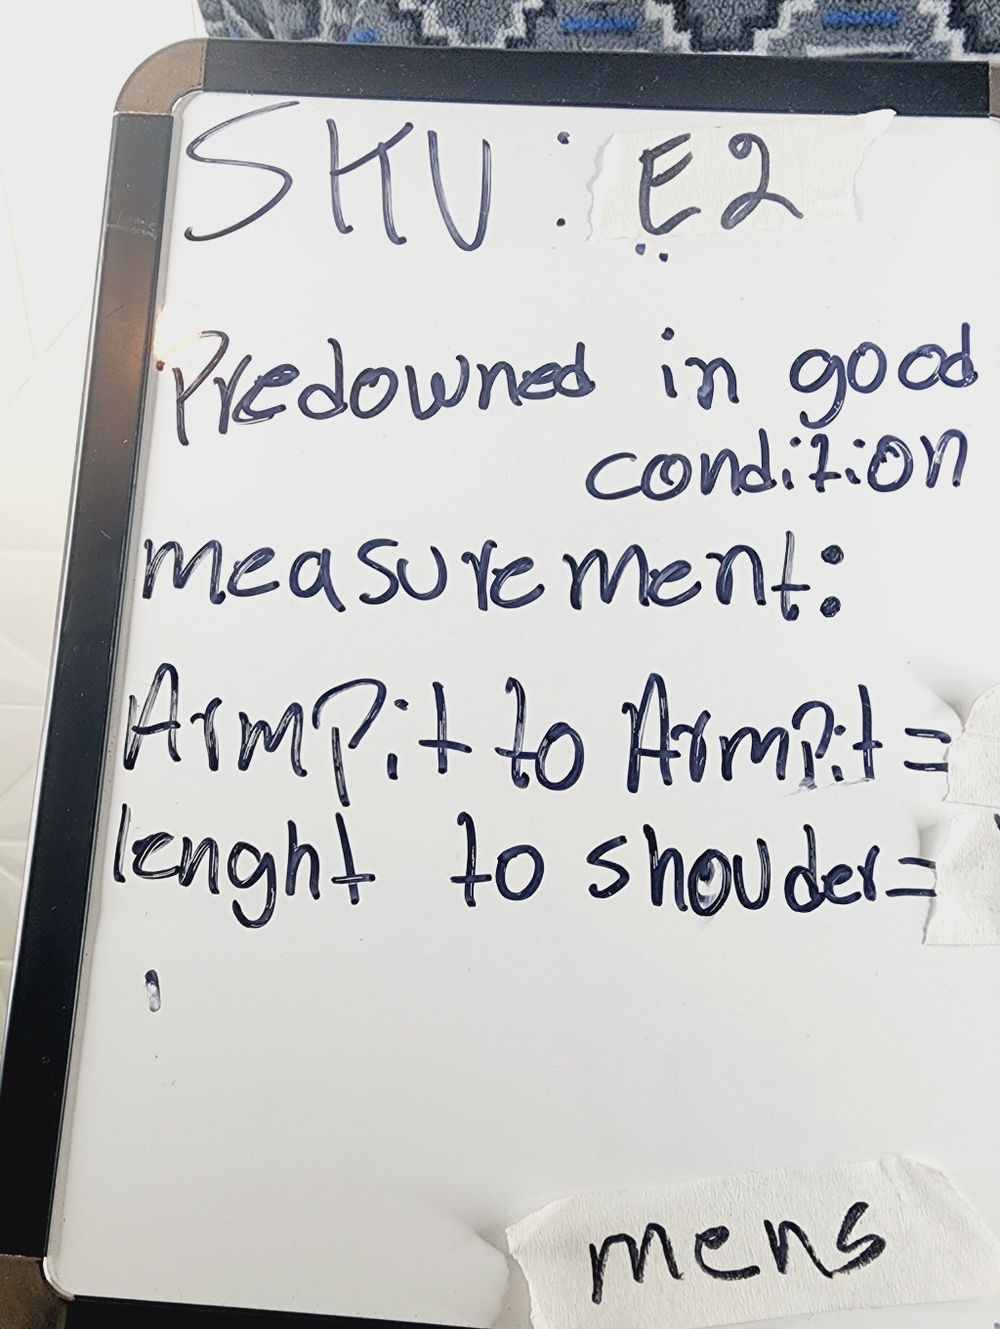 SKU: E2
Predowned in good
condition
measurement:
ArmPit to ArmPit=
lenght to shouder=
mens